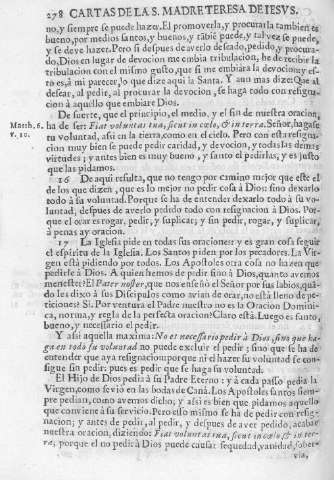 278 CARTAS DE LA S. MADRE TERESA DE IESVS.
no, y siempre se puede hazer. El promoverla, y procurarla tambien es
bueno, por medios santos, y buenos, y tãbiẽ puede, y tal vez se puede,
y se deve hazer. Pero si despues de averlo deseado, pedido, y procura-
do, Dios en lugar de devocion me embia tribulacion, he de recibir la
tribulacion con el mismo gusto, que si me embiàra la devociõ: y es-
to es, à mi parecer, lo que dize aqui la Santa. Y aun mas dize: Que al
desear, al pedir, al procurar la devocion, se haga todo con resigna-
cion à aquello que embiare Dios.
De suerte, que el principio, el medio, y el fin de nuestra oracion,
Matth. 6.
v. 10.
ha de ser: Fiat voluntas tua, sicut in cœlo, & in terra. Señor, hagase
tu voluntad, assi en la tierra, como en el cielo. Pero con esta resigna-
cion muy bien se puede pedir caridad, y devocion, y todas las demàs
virtudes; y antes bien es muy bueno, y santo el pedirlas, y es justo
que las pidamos.
16 De aqui resulta, que no tengo por camino mejor que este el
de los que dizen, que es lo mejor no pedir cosa à Dios: sino dexarlo
todo à su voluntad. Porque se ha de entender dexarlo todo à su vo-
luntad, despues de averlo pedido todo con resignacion à Dios. Por-
que el orar es rogar, pedir, y suplicar; y sin pedir, rogar, y suplicar,
à penas ay oracion.
17 La Iglesia pide en todas sus oraciones: y es gran cosa seguir
el espiritu de la Iglesia. Los Santos piden por los pecadores. La Vir-
gen està pidiendo por todos. Los Apostoles otra cosa no hazen que
pedirle à Dios. A quien hemos de pedir sino à Dios, quanto avemos
menester? El Pater noster, que nos enseñò el Señor por sus labios, quã-
do les dixo à sus Discipulos como avian de orar, no està lleno de pe-
ticiones? Si. Por ventura el Padre nuestro no es la Oracion Domini-
ca, norma, y regla de la perfecta oracion? Claro està. Luego es santo,
bueno, y necessario el pedir.
Y assi aquella maxima: No es necessario pedir à Dios, sino que ha-
ga en todo su voluntad no puede excluir el pedir; sino que se ha de
entender que aya resignacion: porque ni el hazer su voluntad se con-
sigue sin pedir: pues es pedir que se haga su voluntad.
El Hijo de Dios pedia à su Padre Eterno: y à cada passo pedia la
Virgen, como se viò en las bodas de Canà. Los Apostoles santos siem-
pre pedian, como avemos dicho, y assi es bien que pidamos aquello
que conviene à su servicio. Pero esso mismo se ha de pedir con resig-
nacion; y antes de pedir, al pedir, y despues de aver pedido, acabar
nuestra oracion, diziendo: Fiat voluntas tua, sicut in cœlo, & in ter-
ra; porque el no pedir à Dios puede causar sequedad, vanidad, sober-
via,